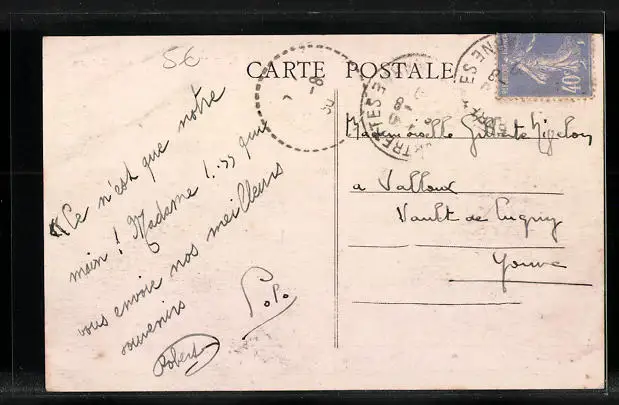 5€
CARTE POSTALE
40c
« Ce n'est que notre
main ! Madame !.. » qui
vous envoie nos meilleurs
souvenirs
Popo
Robert
Mademoiselle
a Valloux
Vault de Lugny
Yonne